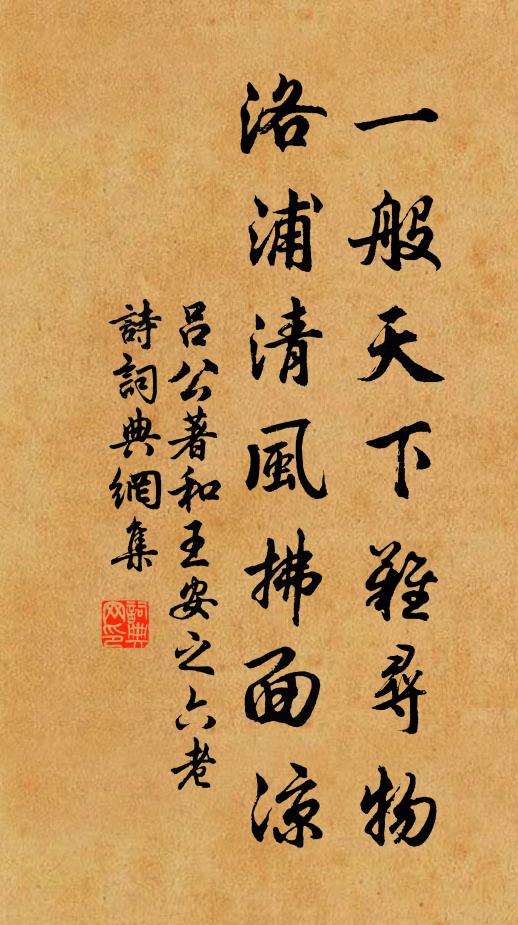 一般天下難尋物
洛浦清風拂面涼
呂公著和王安之六老
詩詞典網集
詞典
网印